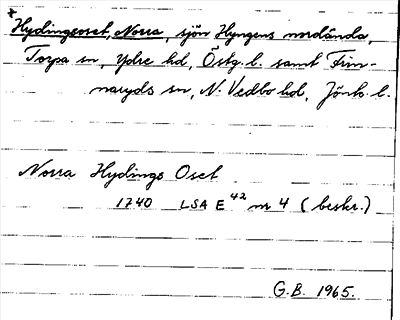 * Hydingsoset, Norra, sjön Hyngens nordända,
Torpa sn, Ydre hd, Östg. l. samt Frin-
naryds sn, N. Vedbo hd, Jönk. l.
Norra Hydings Oset
1740 LSA E 42 nr 4 (beskr.)
G.B. 1965.